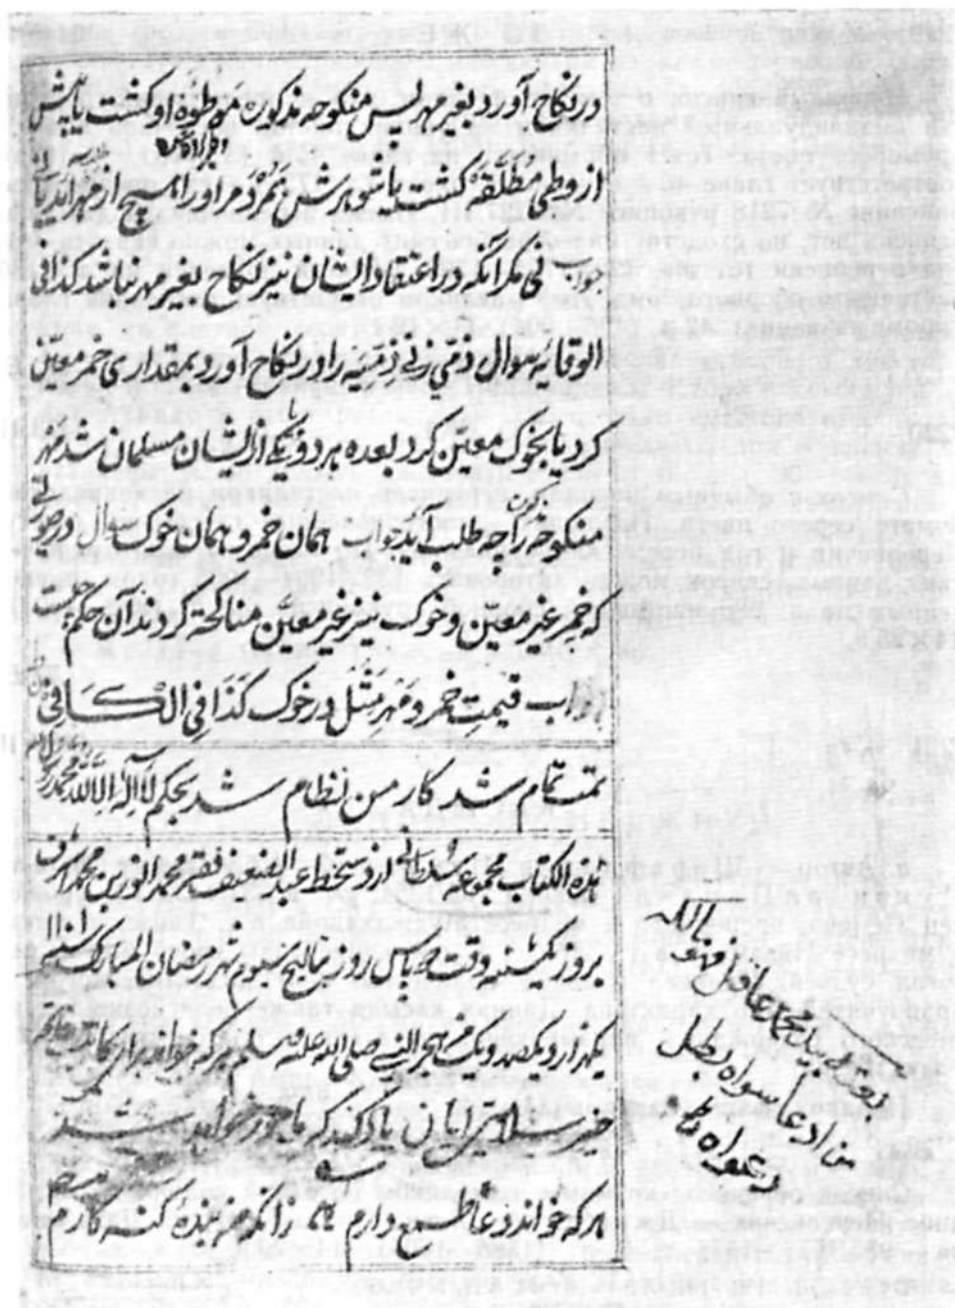 در نکاح آورد بغیر مهر پس منکوحه مذکوره موطؤه او کشت یا پیش
از وطی مطلقه کشت یا شوهرش بمرد مر اورا هیچ از مهر آید یا نی
جواب نی مکر آنکه در اعتقاد ایشان نیز نکاح بغیر مهر نباشد کذا فی
الوقایه سوال ذمی زنی ذمیه را در نکاح آورد بمقداری خمر معین
کرد یا بخوک معین کرد بعده هر دو یا یکی از ایشان مسلمان شد مهر
منکوحه را چه طلب آید جواب همان خمر و همان خوک سوال در صورتی
که خمر غیر معین و خوک نیز غیر معین مناکحه کردند آن حکم چیست
جواب قیمت خمر و مهر مثل در خوک کذا فی الکافی
تمت تمام شد کار من نظام شد بحکم لا اله الا الله محمد رسول
هذه الکتاب مجموعه سلطانی از دستخط عبد الضعیف فقیر محمد انور بن محمد اشرف
بروز یکشنبه وقت دو پاس روز بتاریخ نهم شهر رمضان المبارک سنه
یکهزار و یکصد و یک هجر النبی صلی الله علیه وسلم هر که خواند
خیر سلامتی ایمان یاد کند که ماجور خواهد شد
هر که خواند دعا طمع دارم زانکه من بنده کنه کارم
بالله
من ادعا سواه بطل
دعواه